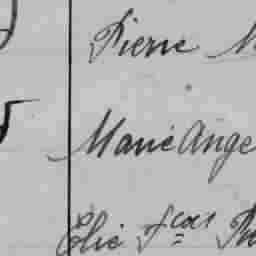 Pierre
Marie Ange
Elie fcois